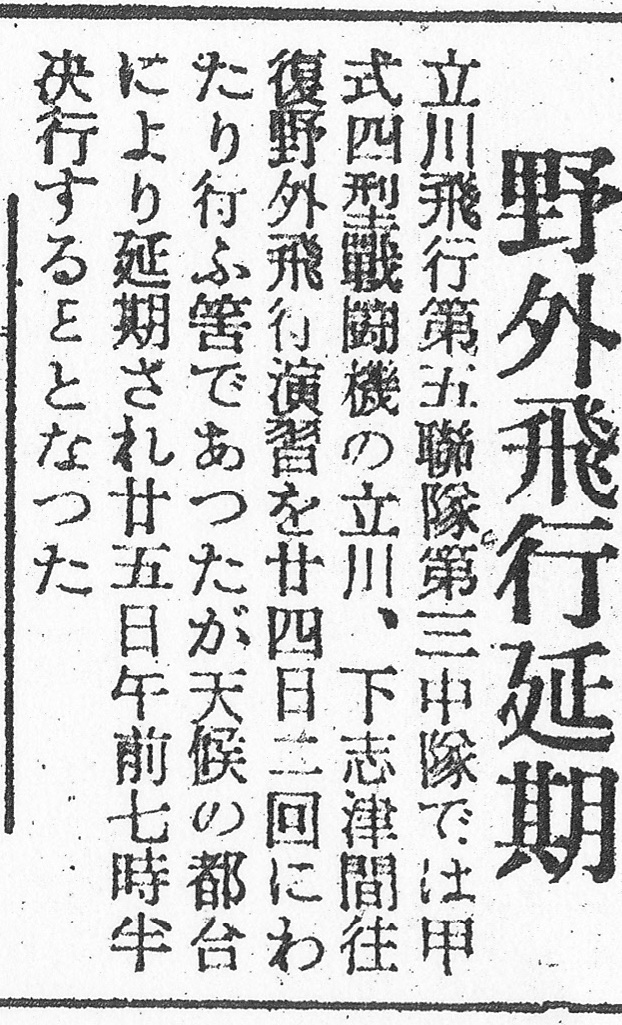 野外飛行延期
立川飛行第五聯隊第三中隊では甲
式四型戰鬪機の立川、下志津間往
復野外飛行演習を廿四日二回にわ
たり行ふ筈であつたが天候の都合
により延期され廿五日午前七時半
决行することとなつた